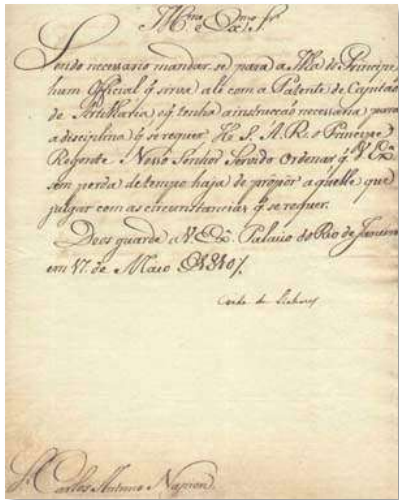 Illmo e Exmo Sr.
Sendo necessario mandar se para a Ilha do Principe
hum Official q sirva ali com a Patente de Capitão
de Artilharia, e q tenha a instrucção necessaria para
a disciplina q se requer: He S. A. R. o Principe
Regente Nosso Senhor Servido Ordenar, q V. Exa.
sem perda de tempo haja de propôr aquelle que
julgar com as circunstancias q se requer.
Deos guarde a V. Exa. Palacio do Rio de Janeiro
em 17. de Maio
Conde de Linhares
Sr. Carlos Antonio Napion.